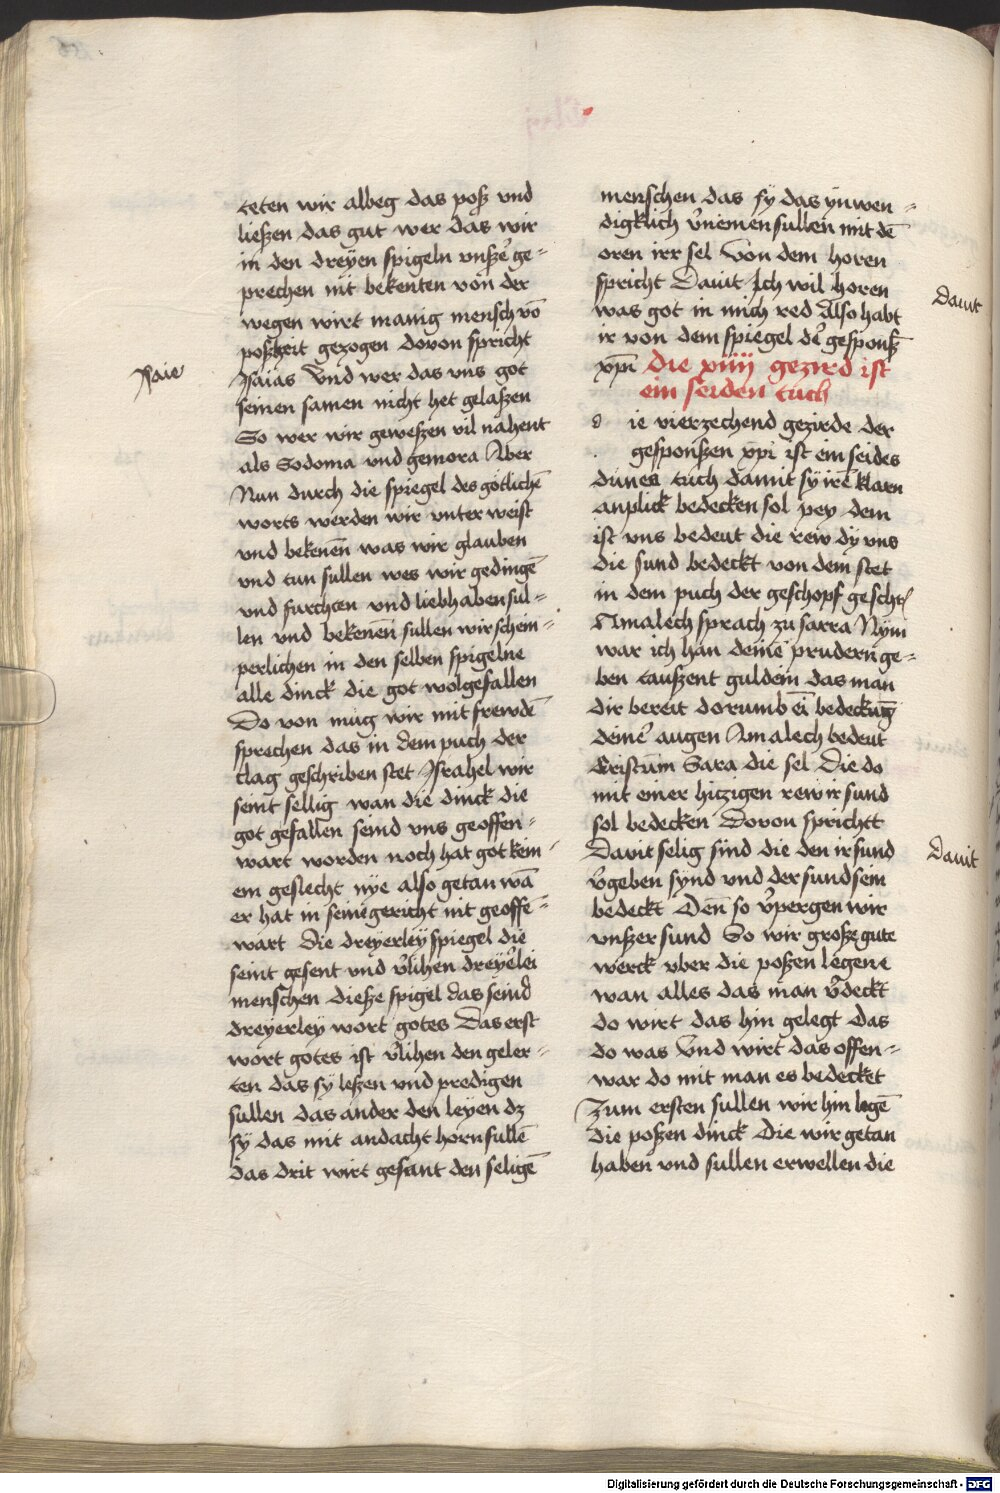 teten wir albeg das poß vnd
ließen das gut wer das wir
in den dreyen spigeln vnßer̉ ge=
prechen nit bekenten von der
wegen wirt manig mensch vō
poßheit gezogen dovon spricht
Isaias Vnd wer das vns got
seinen samen nicht het gelaßen
So wer wir geweßen vil nahent
als Sodoma vnd gemora Aber
Nun durch die spiegel des götlichē
worts werden wir vnter weist
vnd bekenēn was wir glauben
vnd tun sullen wes wir gedingē
vnd furchten vnd liebhaben sul=
len vnd bekenēn sullen wir schein=
perlichen in den selben spigelne
alle dinck die got wolgefallen
Do von mug wir mit frewdē
sprechen das in dem puch der
clag geschriben stet Israhel wir
seint sellig wan die dinck die
got gefallen seind vns geoffen=
wart worden noch hat got kein=
em geslecht nÿe also getan wā
er hat in seine gericht nit geoffē=
wart Die dreyerleÿ spiegel die
seint gesent vnd v̉lihen dreyer̉lei
menschen dieße spigel das seind
dreyerleÿ wort gotes Das erst
wort gotes ist v̉lihen den geler=
ten das sÿ leßen vnd predigen
sullen das ander den leyen dz
sÿ das mit andacht horn sullē
das drit wirt gesant den seligē
Isaie
menschen das sÿ das ynwen=
digklich v̉nemen sullen mit dē
oren irr sel Von dem horen
spricht Dauit Ich wil horen
was got in mich red Also habt
ir von dem spiegel der̉ gesponß
xp̄i Die xiiij gezird ist
ein seiden tuch
d ie vierzechend gezirde der
gesponßen xp̄i ist ein seides
dunes tuch damit sÿ irē klarn
anplick bedecken sol pey dem
ist vns bedeut die rew dÿ vns
die sund bedeckt von dem stet
in dem puch der geschopf gescht
Amalech sprach zu sarra Nÿm
war ich han deinē prudern ge=
ben taußent guldein das man
dir bereit dorumb eī bedeckung
deiner̉ augen Amalech bedeut
Cristum Sara die sel Die do
mit einer hiczigen rew ir sund
sol bedecken Dovon sprichtt
Dauit selig sind die den ir sund
v̉geben synd vnd der sund sein
bedeckt Den̄ so v̉pergen wir
vnßer sund So wir große gute
werck vber die poßen legene
wan alles das man v̉deckt
do wirt das hin gelegt das
do was Vnd wirt das offen=
war do mit man es bedecket
Zum ersten sullen wir hin legē
die poßen dinck die wir getan
haben vnd sullen erwellen die
dauit
dauit
Digitalisierung gefördert durch die Deutsche Forschungsgemeinschaft - DFG